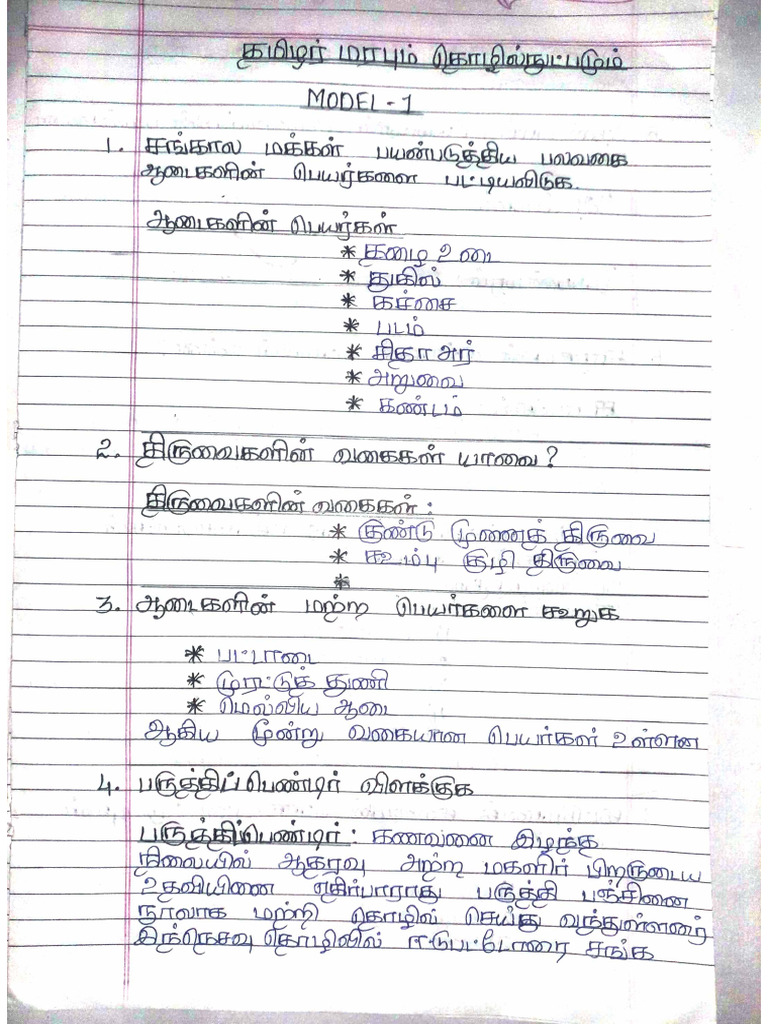 தமிழர் மரபும் தொழில்நுட்பமும்
MODEL - 1
1. சங்கால மக்கள் பயன்படுத்திய பலவகை
ஆடைகளின் பெயர்களை பட்டியலிடுக.
ஆடைகளின் பெயர்கள்
* தழை உடை
* துகில்
* கச்சை
* படம்
* சிதா அர்
* அறுவை
* கண்டம்
2. திருவைகளின் வகைகள் யாவை?
திருவைகளின் வகைகள் :
* குண்டு முனைத் திருவை
* கூம்பு குழி திருவை
*
3. ஆடைகளின் மற்ற பெயர்களை கூறுக
* பட்டாடை
* முரட்டுத் துணி
* மெல்லிய ஆடை
ஆகிய மூன்று வகையான பெயர்கள் உள்ளன
4. பருத்திப்பெண்டிர் விளக்குக
பருத்திப்பெண்டிர் : கணவனை இழந்த
நிலையில் ஆதரவு அற்ற மகளிர் பிறருடைய
உதவியினை எதிர்பாராது பருத்தி பஞ்சினை
நூலாக மற்றி தொழில் செய்து வந்துள்ளனர்
இந்நெசவு தொழிலில் ஈடுபட்டோரை சங்க